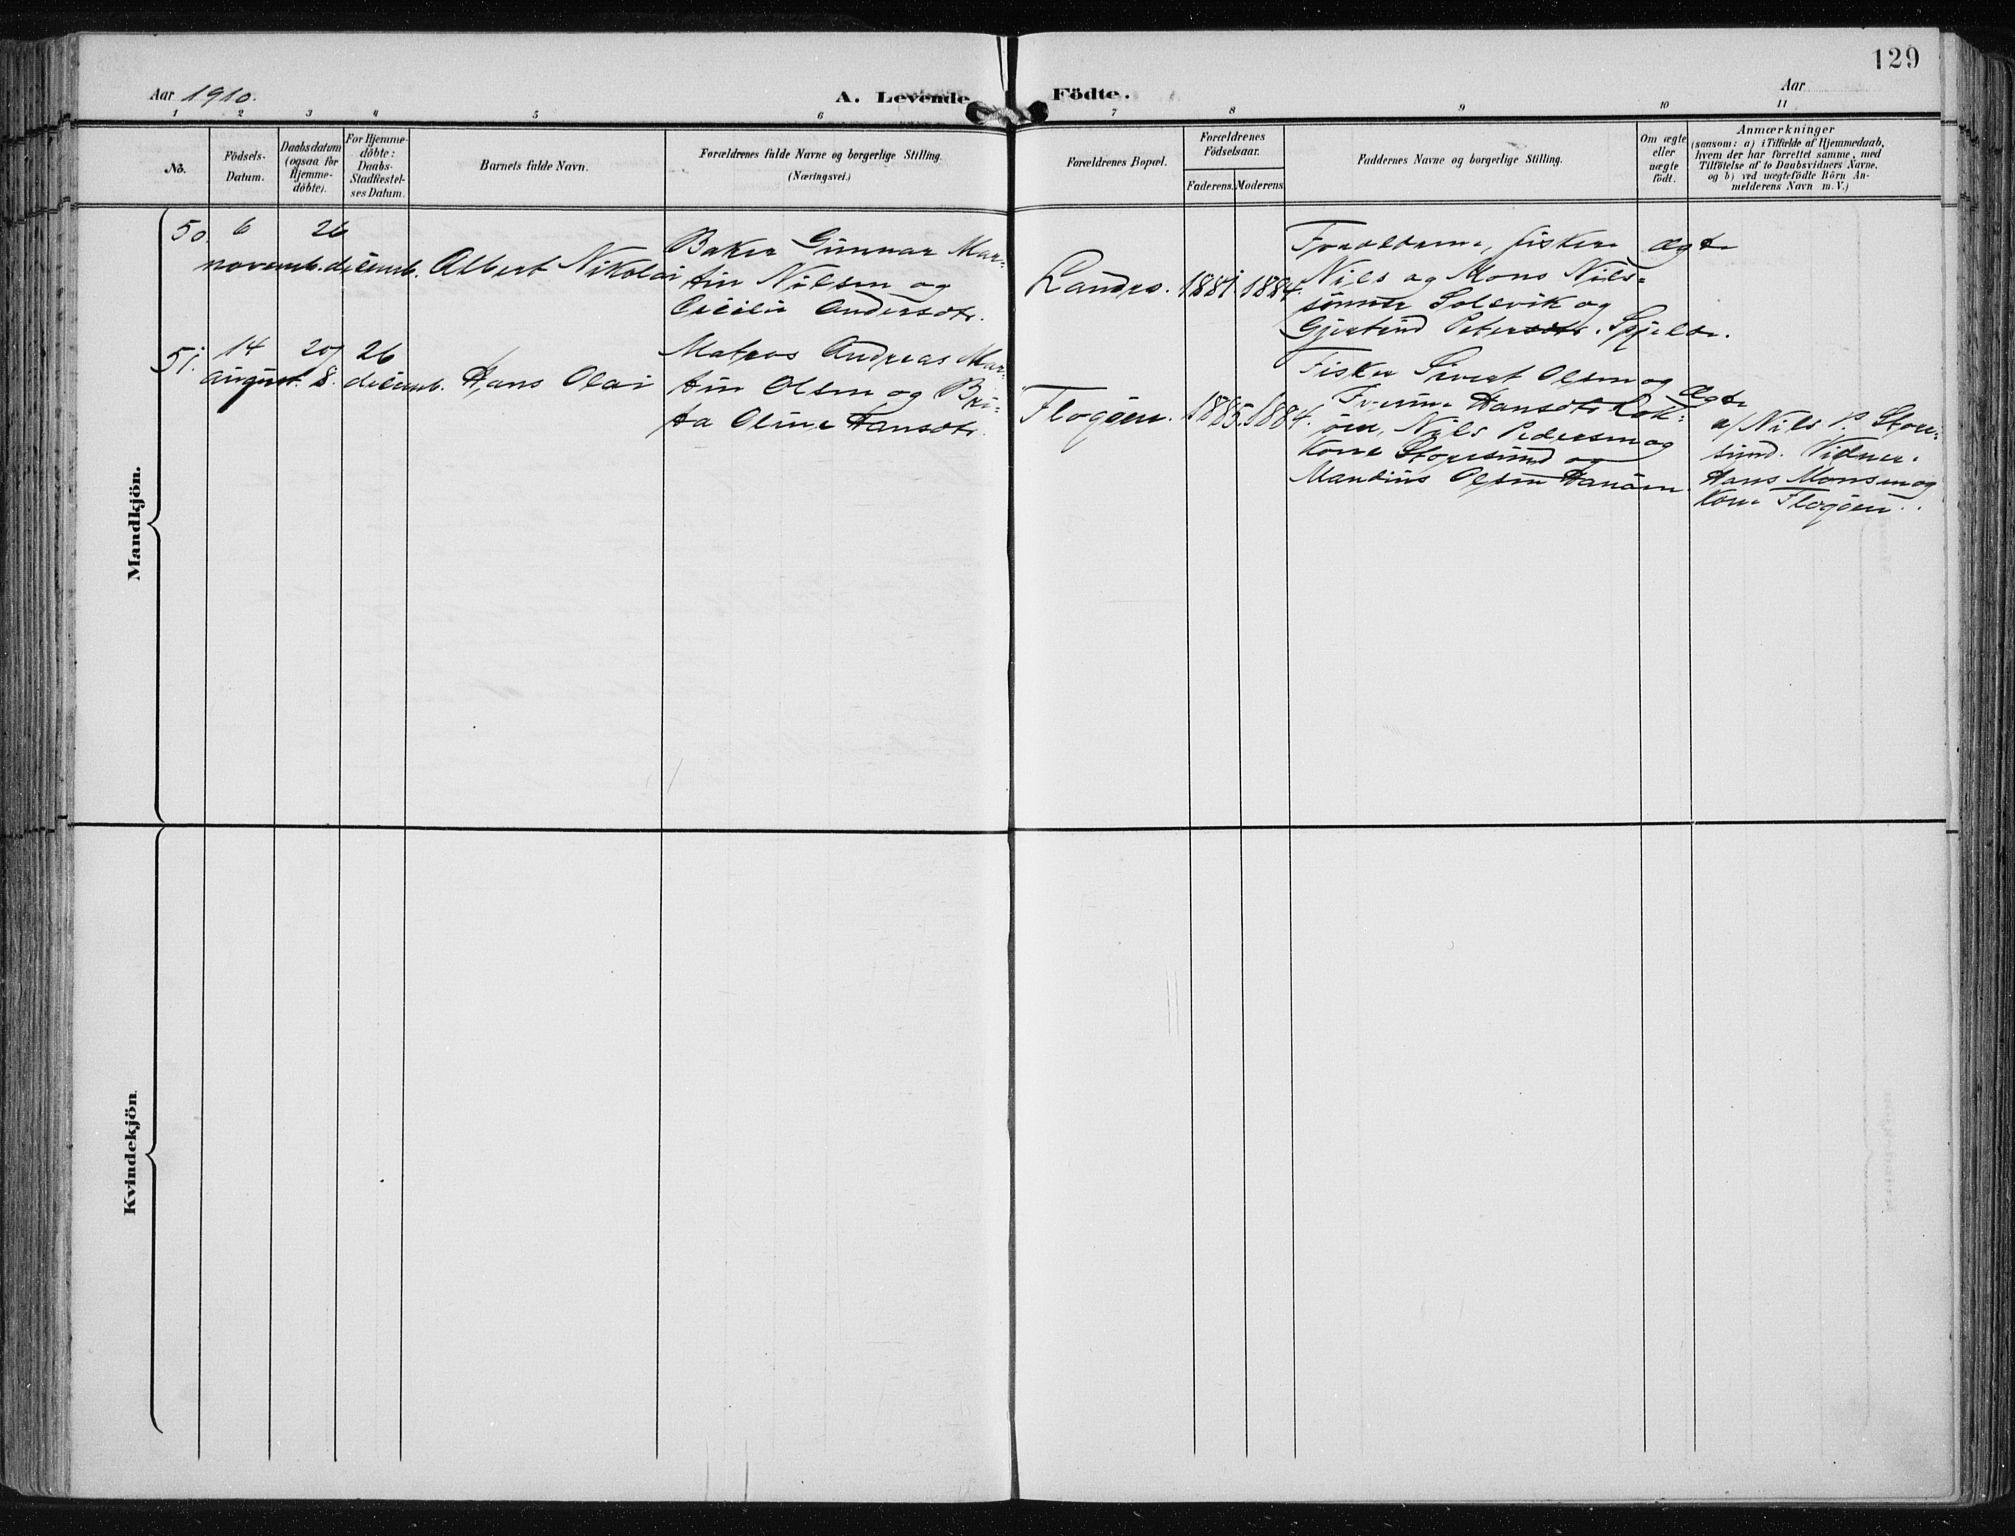 129
Aar 1910.
A. Levende Födte.
Aar
1 2 3 4 5 6 7 8 9 10 11
No.
Födsels-
Datum.
Daabsdatum
(ogsaa for
Hjemme-
döbte).
For Hjemme-
döbte:
Daabs-
Stadfæstel-
ses Datum.
Barnets fulde Navn.
Forældrenes fulde Navne og borgerlige Stilling.
(Næringsvei.)
Forældrenes Bopæl.
Forældrenes
Födselsaar.
Faderens.
Moderens.
Faddernes Navne og borgerlige Stilling.
Om ægte
eller
uægte
födt.
Anmærkninger
(saasom: a) i Tilfælde af Hjemmedaab,
hvem der har forrettet samme, med
Tilföielse af to Daabsvidners Navne,
og b) ved uægtefödte Börn An-
melderens Navn m. V.)
Mandkjön.
50.
6
novemb.
26
decemb.
Albert Nikolai
Baker Gunnar Mar-
tin Nilsen og
Cecilie Andersdtr.
Landro.
1881.
1884.
Forældrene, fisker
Nils og Mons Nils-
sønner Solsvik og
Gjertrud Petersdtr. Spjeld.
Ægte
51.
14
august.
20/
8.
26
decemb.
Hans Olai
Matros Andreas Mar-
tin Olsen og Bri-
ta Oline Hansdtr.
Flogøen.
1885.
1884.
Fisker Sivert Olsen og
Hansdtr
øen, Nils Pedersen og
Kone Storesund og
Mandius Olsen Hanøen.
Ægte
a/ Nils P. Store-
sund. Vidner.
Hans Monsen og
kone Flogøen.
Kvindekjön.